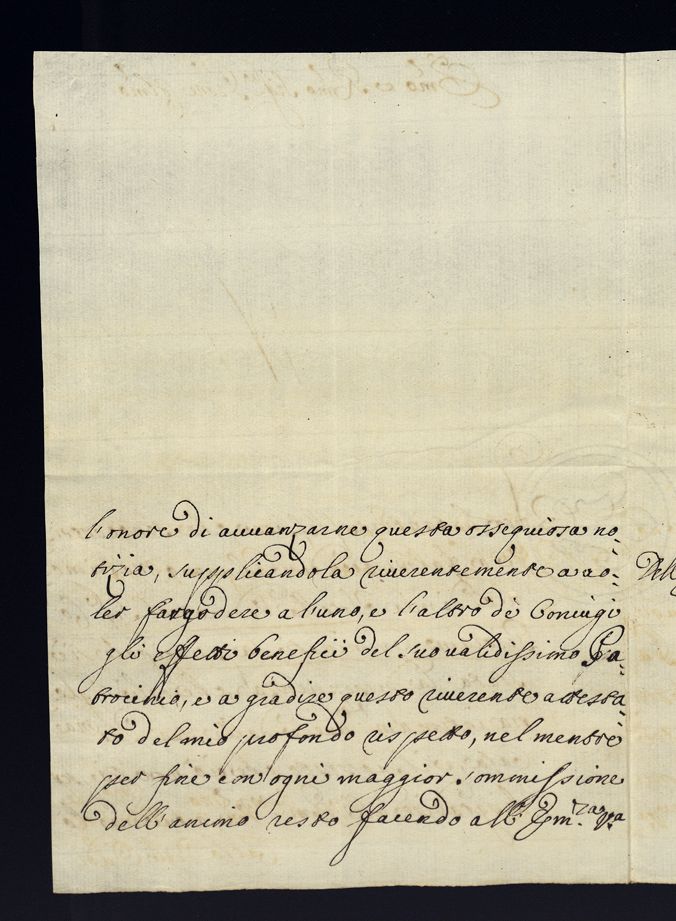 l'onore di avvanzarne questa ossequiosa no-
tizia, supplicandola riverentemente a vo-
ler far godere a l'uno, e l'altro dè Coniugi
gli effetti beneficii del suo validissimo Pa-
trocinio, e a gradire questo riverente attesta-
to del mio profondo rispetto, nel mentre
per fine con ogni maggior sommissione
dell'animo resto facendo all' Em.za V.ra